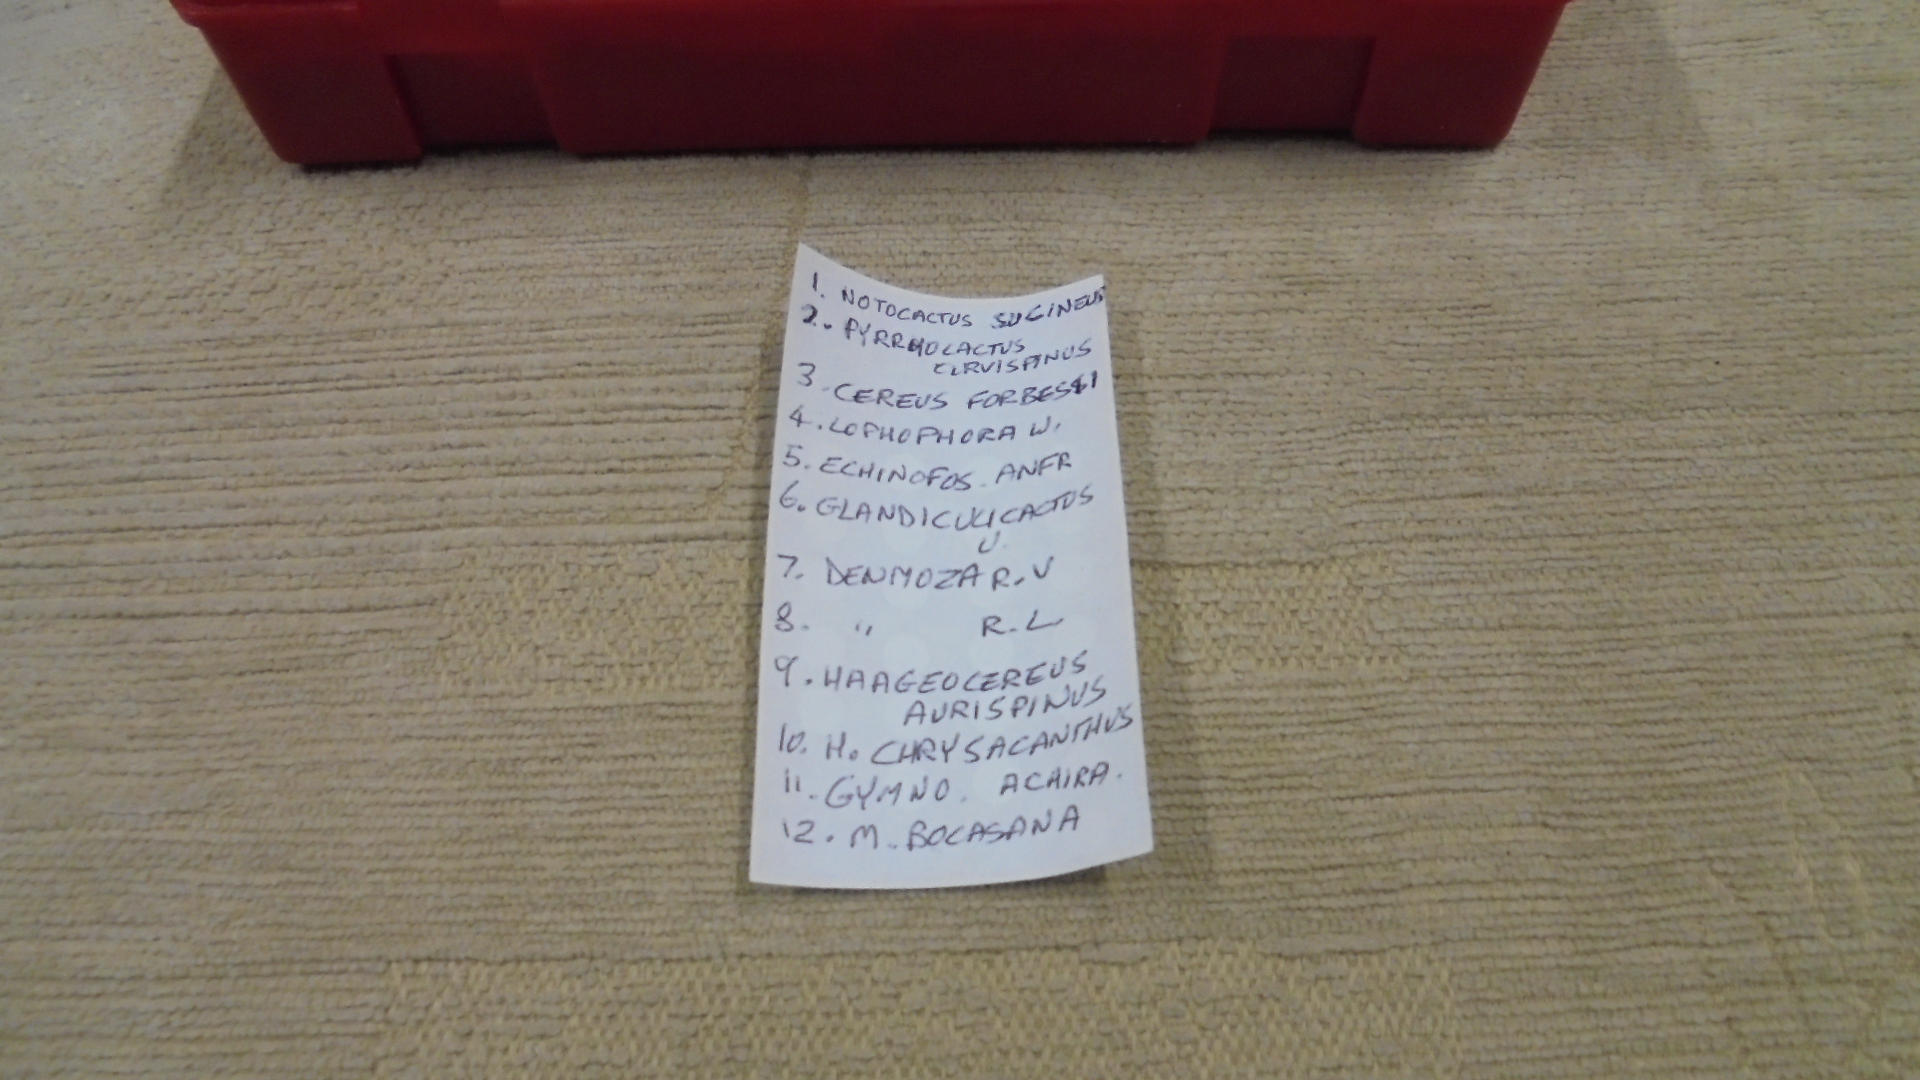 1. NOTOCACTUS SUCINEUS
2. PYRRHOCACTUS
CURVISPINUS
3. CEREUS FORBESSI
4. LOPHOPHORA W.
5. ECHINOFOS. ANFR
6. GLANDICULICACTUS
U.
7. DENMOZA R.V
8. " R.L
9. HAAGEOCEREUS
AURISPINUS
10. H. CHRYSACANTHUS
11. GYMNO. ACHIRA.
12. M. BOCASANA